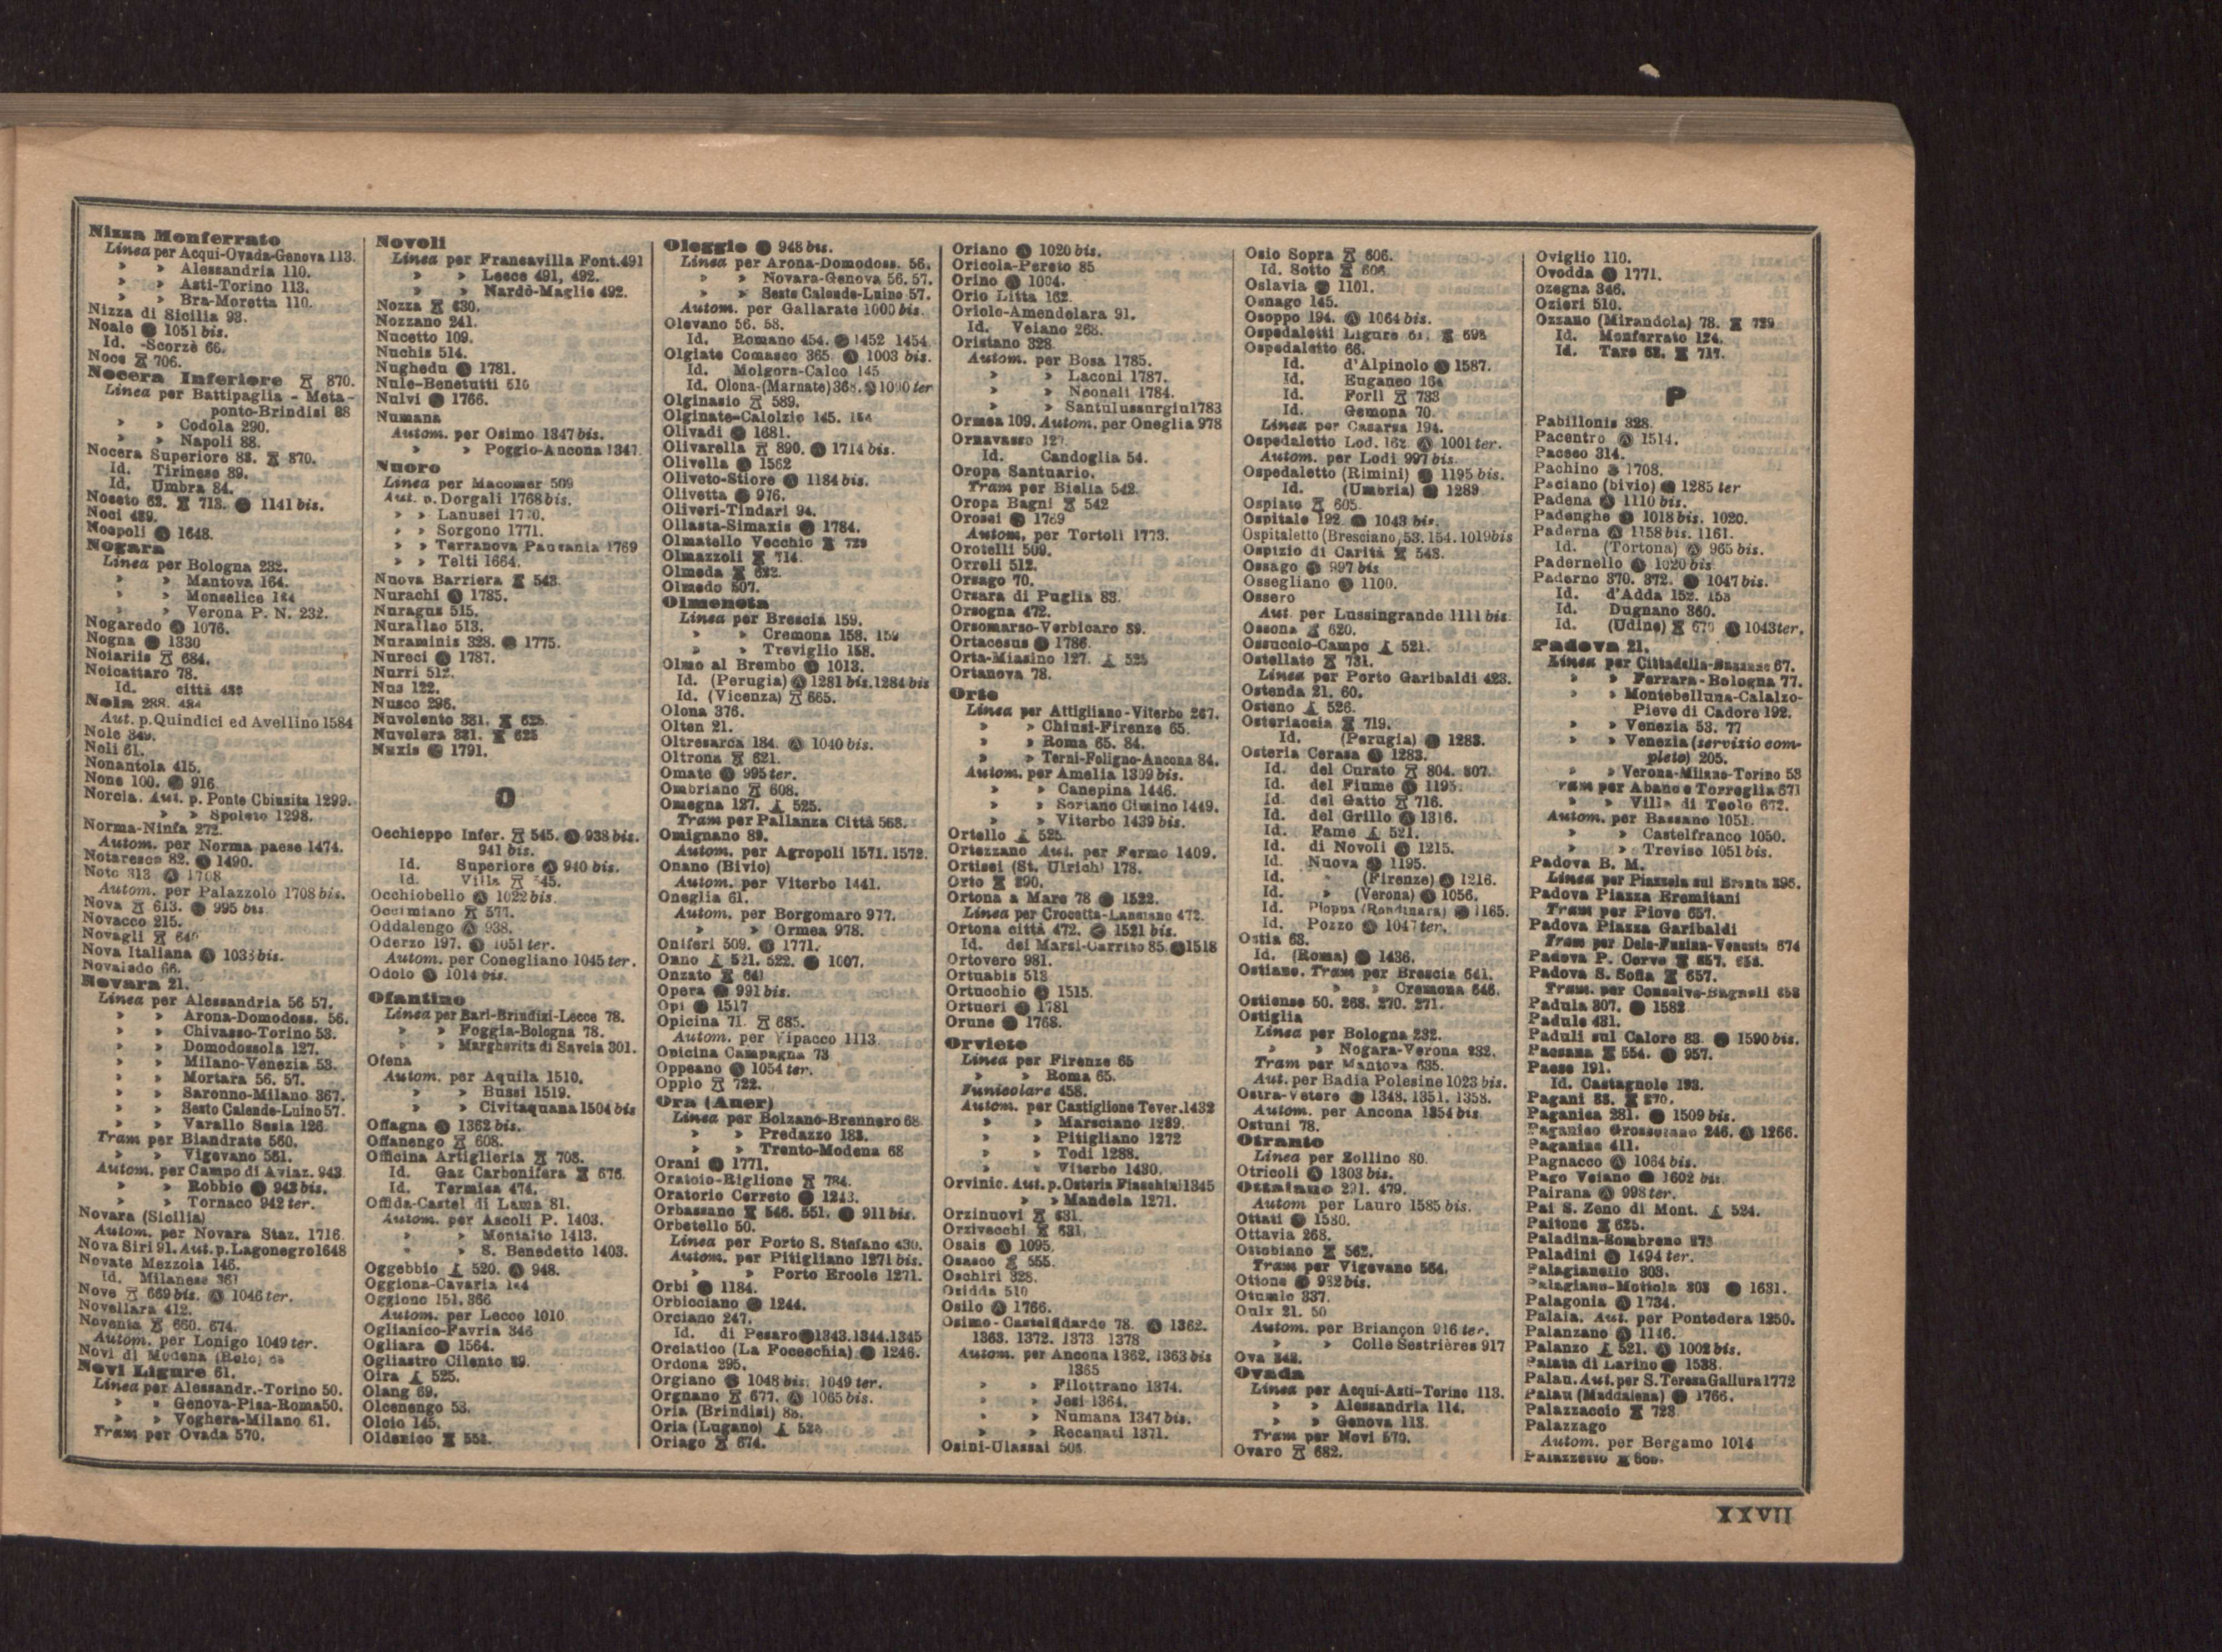 Nizza Monferrato
Linea per Acqui-Ovada-Genova 113.
» » Alessandria 110.
» » Asti-Torino 113.
» » Bra-Moretta 110.
Nizza di Sicilia 93.
Noale 1051 bis.
Id. -Scorzè 66.
Noce 706.
Nocera Inferiore 870.
Linea per Battipaglia - Meta-
ponto-Brindisi 88
» » Codola 290.
» » Napoli 88.
Nocera Superiore 88. 870.
Id. Tirinese 89.
Id. Umbra 84.
Noceto 62. 718. 1141 bis.
Noci 489.
Noepoli 1648.
Nogara
Linea per Bologna 232.
» » Mantova 164.
» » Monselice 164
» » Verona P. N. 232.
Nogaredo 1076.
Nogna 1330
Noiariis 684.
Noicattaro 78.
Id. città 489
Nola 288. 484
Aut. p. Quindici ed Avellino 1584
Nole 349.
Noli 61.
Nonantola 415.
None 100. 916
Norcia. Aut. p. Ponte Chiusita 1299.
» » Spoleto 1298.
Norma-Ninfa 272.
Autom. per Norma paese 1474.
Notaresco 82. 1490.
Noto 313 1708
Autom. per Palazzolo 1708 bis.
Nova 613. 995 bis.
Novacco 215.
Novagli
Nova Italiana 1033 bis.
Novaledo 66.
Novara 21.
Linea per Alessandria 56 57.
» » Arona-Domodoss. 56.
» » Chivasso-Torino 53.
» » Domodossola 127.
» » Milano-Venezia 53.
» » Mortara 56. 57.
» » Saronno-Milano 367.
» » Sesto Calende-Luino 57.
» » Varallo Sesia 126.
Tram per Biandrate 560.
» » Vigevano 561.
Autom. per Campo di Aviaz. 943
» » Robbio 942 bis.
» » Tornaco 942 ter.
Novara (Sicilia)
Autom. per Novara Staz. 1716
Nova Siri 91. Aut. p. Lagonegro 1648
Novate Mezzola 146.
Id. Milanese 367
Nove 669 bis. 1046 ter.
Novellara 412.
Noventa 660. 674.
Autom. per Lonigo 1049 ter.
Novi di Modena (Rolo)
Novi Ligure 61.
Linea per Alessandr.-Torino 50.
» » Genova-Pisa-Roma 50.
» » Voghera-Milano 61.
Tram per Ovada 570.
Novoli
Linea per Francavilla Font. 491
» » Lecce 491, 492.
» » Nardò-Maglie 492.
Nozza 630.
Nozzano 241.
Nucetto 109.
Nuchis 514.
Nughedu 1781.
Nule-Benetutti 510
Nulvi 1766.
Numana
Autom. per Osimo 1347 bis.
» » Poggio-Ancona 1347.
Nuoro
Linea per Macomer 509
Aut. p. Dorgali 1768 bis.
» » Lanusei 1770.
» » Sorgono 1771.
» » Terranova Pausania 1769
» » Telti 1664.
Nuova Barriera 543.
Nurachi 1785.
Nuragus 515.
Nurallao 513.
Nuraminis 328. 1775.
Nureci 1787.
Nurri 512.
Nus 122.
Nusco 296.
Nuvolento 381. 625.
Nuvolera 381. 625
Nuxis 1791.
O
Occhieppo Infer. 545. 938 bis.
941 bis.
Id. Superiore 940 bis.
Id. Villa 545.
Occhiobello 1022 bis.
Occimiano 577.
Oddalengo 938.
Oderzo 197. 1051 ter.
Autom. per Conegliano 1045 ter.
Odolo 1014 bis.
Ofantino
Linea per Bari-Brindisi-Lecce 78.
» » Foggia-Bologna 78.
» » Margherita di Savoia 301.
Ofena
Autom. per Aquila 1510.
» » Bussi 1519.
» » Civitaquana 1504 bis
Offagna 1362 bis.
Offanengo 608.
Officina Artiglieria 708.
Id. Gaz Carbonifera 676.
Id. Termica 474.
Offida-Castel di Lama 81.
Autom. per Ascoli P. 1403.
» » Montalto 1413.
» » S. Benedetto 1403.
Oggebbio 520. 948.
Oggiona-Cavaria 144
Oggiono 151. 366
Autom. per Lecco 1010
Oglianico-Favria 346
Ogliara 1564.
Ogliastro Cilento 89.
Oira 525.
Olang 69.
Olcenengo 53.
Olcio 145.
Oldenico 552.
Oleggio 948 bis.
Linea per Arona-Domodoss. 56.
» » Novara-Genova 56. 57.
» » Sesto Calende-Luino 57.
Autom. per Gallarate 1000 bis.
Olevano 56. 58.
Id. Romano 454. 1452 1454
Olgiate Comasco 365. 1003 bis.
Id. Molgora-Calco 145
Id. Olona-(Marnate) 368. 1090 ter
Olginasio 589.
Olginate-Calolzio 145. 154
Olivadi 1681.
Olivarella 890. 1714 bis.
Olivella 1562
Oliveto-Stiore 1184 bis.
Olivetta 976.
Oliveri-Tindari 94.
Ollasta-Simaxis 1784.
Olmatello Vecchio 729
Olmazzoli 714.
Olmeda 622.
Olmedo 507.
Olmeneta
Linea per Brescia 159.
» » Cremona 158. 159
» » Treviglio 158.
Olmo al Brembo 1013.
Id. (Perugia) 1281 bis. 1284 bis
Id. (Vicenza) 665.
Olona 376.
Olten 21.
Oltresarca 184. 1040 bis.
Oltrona 621.
Omate 995 ter.
Ombriano 608.
Omegna 127. 525.
Tram per Pallanza Città 568.
Omignano 89.
Autom. per Agropoli 1571. 1572.
Onano (Bivio)
Autom. per Viterbo 1441.
Oneglia 61.
Autom. per Borgomaro 977.
» » Ormea 978.
Oniferi 509. 1771.
Onno 521. 522. 1007.
Onzato 641
Opera 991 bis.
Opi 1517
Opicina 71. 685.
Autom. per Vipacco 1113
Opicina Campagna 73
Oppeano 1054 ter.
Oppio 722.
Ora (Auer)
Linea per Bolzano-Brennero 68
» » Predazzo 183.
» » Trento-Modena 68
Orani 1771.
Oratoio-Riglione 784.
Oratorio Cerreto 1243.
Orbassano 546. 551. 911 bis.
Orbetello 50.
Linea per Porto S. Stefano 430.
Autom. per Pitigliano 1271 bis.
» » Porto Ercole 1271.
Orbi 1184.
Orbicciano 1244.
Orciano 247.
Id. di Pesaro 1343. 1344. 1345
Orciatico (La Fococchia) 1246.
Ordona 295.
Orgiano 1048 bis. 1049 ter.
Orgnano 677. 1065 bis.
Oria (Brindisi) 88.
Oria (Lugano)
Oriago 674.
Oriano 1020 bis.
Oricola-Pereto 85
Orino 1004.
Orio Litta 162.
Oriolo-Amendolara 91.
Id. Veiano 268.
Oristano 328
Autom. per Bosa 1785.
» » Laconi 1787.
» » Neoneli 1784.
» » Santulussurgiu 1783
Ormea 109. Autom. per Oneglia 978
Ornavasso 127.
Id. Candoglia 54.
Oropa Santuario.
Tram per Biella 542.
Oropa Bagni 542
Orosei 1769
Autom. per Tortolì 1773.
Orotelli 509.
Orroli 512.
Orsago 70.
Orsara di Puglia 83.
Orsogna 472.
Orsomarso-Verbicaro 89.
Ortacesus 1786.
Orta-Miasino 127. 525
Ortanova 78.
Orte
Linea per Attigliano-Viterbo 267.
» » Chiusi-Firenze 65.
» » Roma 65. 84.
» » Terni-Foligno-Ancona 84.
Autom. per Amelia 1309 bis.
» » Canepina 1446.
» » Soriano Cimino 1449.
» » Viterbo 1439 bis.
Ortello 525.
Ortezzano Aut. per Fermo 1409.
Ortisei (St. Ulrich) 178.
Orto 890.
Ortona a Mare 78 1522.
Linea per Crocetta-Lanciano 472.
Ortona città 472. 1521 bis.
Id. dei Marsi-Carrito 85. 1518
Ortovero 981.
Ortuabis 513
Ortucchio 1515.
Ortueri 1781
Orune 1768.
Orvieto
Linea per Firenze 65
» » Roma 65.
Funicolare 458.
Autom. per Castiglione Tever. 1432
» » Marsciano 1289.
» » Pitigliano 1272
» » Todi 1288.
» » Viterbo 1430.
Orvinio. Aut. p. Osteria Fiacchini 1345
» » Mandela 1271.
Orzinuovi 631.
Orzivecchi 631.
Osais 1095.
Osasco 555.
Oschiri 328.
Osidda 510
Osilo 1766.
Osimo-Castelfidardo 78. 1362.
1363. 1372. 1373 1378
Autom. per Ancona 1362. 1363 bis
1365
» » Filottrano 1374.
» » Jesi 1364.
» » Numana 1347 bis.
» » Recanati 1371.
Osini-Ulassai 508.
Osio Sopra 606.
Id. Sotto 606
Oslavia 1101.
Osnago 145.
Osoppo 194. 1064 bis.
Ospedaletti Ligure 61. 698
Ospedaletto 66.
Id. d'Alpinolo 1587.
Id. Euganeo 164
Id. Forlì 733
Id. Gemona 70.
Linea per Casarsa 194.
Ospedaletto Lod. 162 1001 ter.
Autom. per Lodi 997 bis.
Ospedaletto (Rimini) 1195 bis.
Id. (Umbria) 1289
Ospiate 605.
Ospitale 192. 1043 bis.
Ospitaletto (Bresciano) 53. 154. 1019 bis
Ospizio di Carità 548.
Ossago 997 bis
Ossegliano 1100.
Ossero
Aut. per Lussingrande 1111 bis.
Ossona 620.
Ossuccio-Campo 521.
Ostellato 731.
Linea per Porto Garibaldi 423.
Ostenda 21. 60.
Osteno 526.
Osteriaccia 719.
Id. (Perugia) 1283.
Osteria Cerasa 1283.
Id. del Curato 804. 807.
Id. del Fiume 1195.
Id. del Gatto 716.
Id. del Grillo 1316.
Id. Fame 521.
Id. di Novoli 1215.
Id. Nuova 1195.
Id. » (Firenze) 1216.
Id. » (Verona) 1056.
Id. Pioppa (Rondinara) 1165.
Id. Pozzo 1047 ter.
Ostia 63.
Id. (Roma) 1436.
Ostiano. Tram per Brescia 641.
» » Cremona 646.
Ostiense 50. 268. 270. 271.
Ostiglia
Linea per Bologna 232.
» » Nogara-Verona 232.
Tram per Mantova 635.
Aut. per Badia Polesine 1023 bis.
Ostra-Vetere 1348. 1351. 1358.
Autom. per Ancona 1354 bis
Ostuni 78.
Otranto
Linea per Zollino 80.
Otricoli 1303 bis.
Ottaiano 291. 479.
Autom per Lauro 1585 bis.
Ottati 1580.
Ottavia 268.
Ottobiano 562.
Tram per Vigevano 564.
Ottone 932 bis.
Otumio 337.
Oulx 21. 50
Autom. per Briançon 916 ter.
» » Colle Sestrières 917
Ova 342.
Ovada
Linea per Acqui-Asti-Torino 113.
» » Alessandria 114.
» » Genova 113.
Tram per Novi 570.
Ovaro 682.
Oviglio 110.
Ovodda 1771.
Ozegna 346.
Ozieri 510.
Ozzano (Mirandola) 78. 729
Id. Monferrato 124.
Id. Taro 62. 717.
P
Pabillonis 328.
Pacentro 1514.
Paceco 314.
Pachino 1708.
Paciano (bivio) 1285 ter
Padena 1110 bis.
Padenghe 1018 bis. 1020.
Paderna 1158 bis. 1161.
Id. (Tortona) 965 bis.
Padernello 1020 bis
Paderno 370. 372. 1047 bis.
Id. d'Adda 152. 153
Id. Dugnano 360.
Id. (Udine) 670 1043 ter.
Padova 21.
Linea per Cittadella-Bassano 67.
» » Ferrara-Bologna 77.
» » Montebelluna-Calalzo-
Pieve di Cadore 192.
» » Venezia 53. 77
» » Venezia (servizio com-
pleto) 205.
» » Verona-Milano-Torino 53
Tram per Abano e Torreglia 671
» » Villa di Teolo 672.
Autom. per Bassano 1051.
» » Castelfranco 1050.
» » Treviso 1051 bis.
Padova B. M.
Linea per Piazzola sul Brenta 395.
Padova Piazza Eremitani
Tram per Piove 657.
Padova Piazza Garibaldi
Tram per Dolo-Fusina-Venezia 674
Padova P. Corvo 657. 658.
Padova S. Sofia 657.
Tram. per Conselve-Bagnoli 658
Padula 307. 1582
Padule 431.
Paduli sul Calore 83. 1590 bis.
Paesana 554. 957.
Paese 191.
Id. Castagnole 193.
Pagani 88. 870.
Paganica 281. 1509 bis.
Paganico Grossetano 246. 1266.
Paganine 411.
Pagnacco 1064 bis.
Pago Veiano 1602 bis.
Pairana 998 ter.
Pai S. Zeno di Mont. 524.
Paitone 625.
Paladina-Sombreno 373
Paladini 1494 ter.
Palagianello 303.
Palagiano-Mottola 303 1631.
Palagonia 1734.
Palaia. Aut. per Pontedera 1250.
Palanzano 1146.
Palanzo 521. 1002 bis.
Palata di Larino 1538.
Palau. Aut. per S. Teresa Gallura 1772
Palau (Maddalena) 1766.
Palazzaccio 723
Palazzago
Autom. per Bergamo 1014
Palazzetto
XXVII